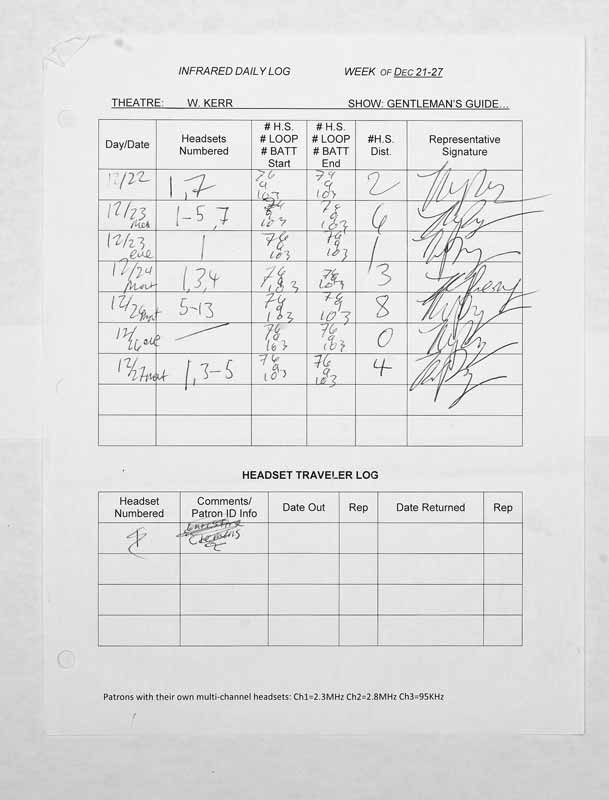 INFRARED DAILY LOG WEEK OF DEC 21-27
THEATRE: W. KERR SHOW: GENTLEMAN'S GUIDE...
Day/Date Headsets Numbered # H.S. # LOOP # BATT Start # H.S. # LOOP # BATT End #H.S. Dist. Representative Signature
12/22 1,7 76 9 103 76 9 103 2
12/23 1-5,7 76 9 103 76 9 103 6
12/23 eve 1 76 9 103 76 9 103 1
12/24 mat 1,3,4 76 9 103 76 9 103 3
12/26 mat 5-13 76 9 103 76 9 103 8
12/26 eve — 76 9 103 76 9 103 0
12/27 mat 1,3-5 76 9 103 76 9 103 4
HEADSET TRAVELER LOG
Headset Numbered Comments/ Patron ID Info Date Out Rep Date Returned Rep
Patrons with their own multi-channel headsets: Ch1=2.3MHz Ch2=2.8MHz Ch3=95KHz